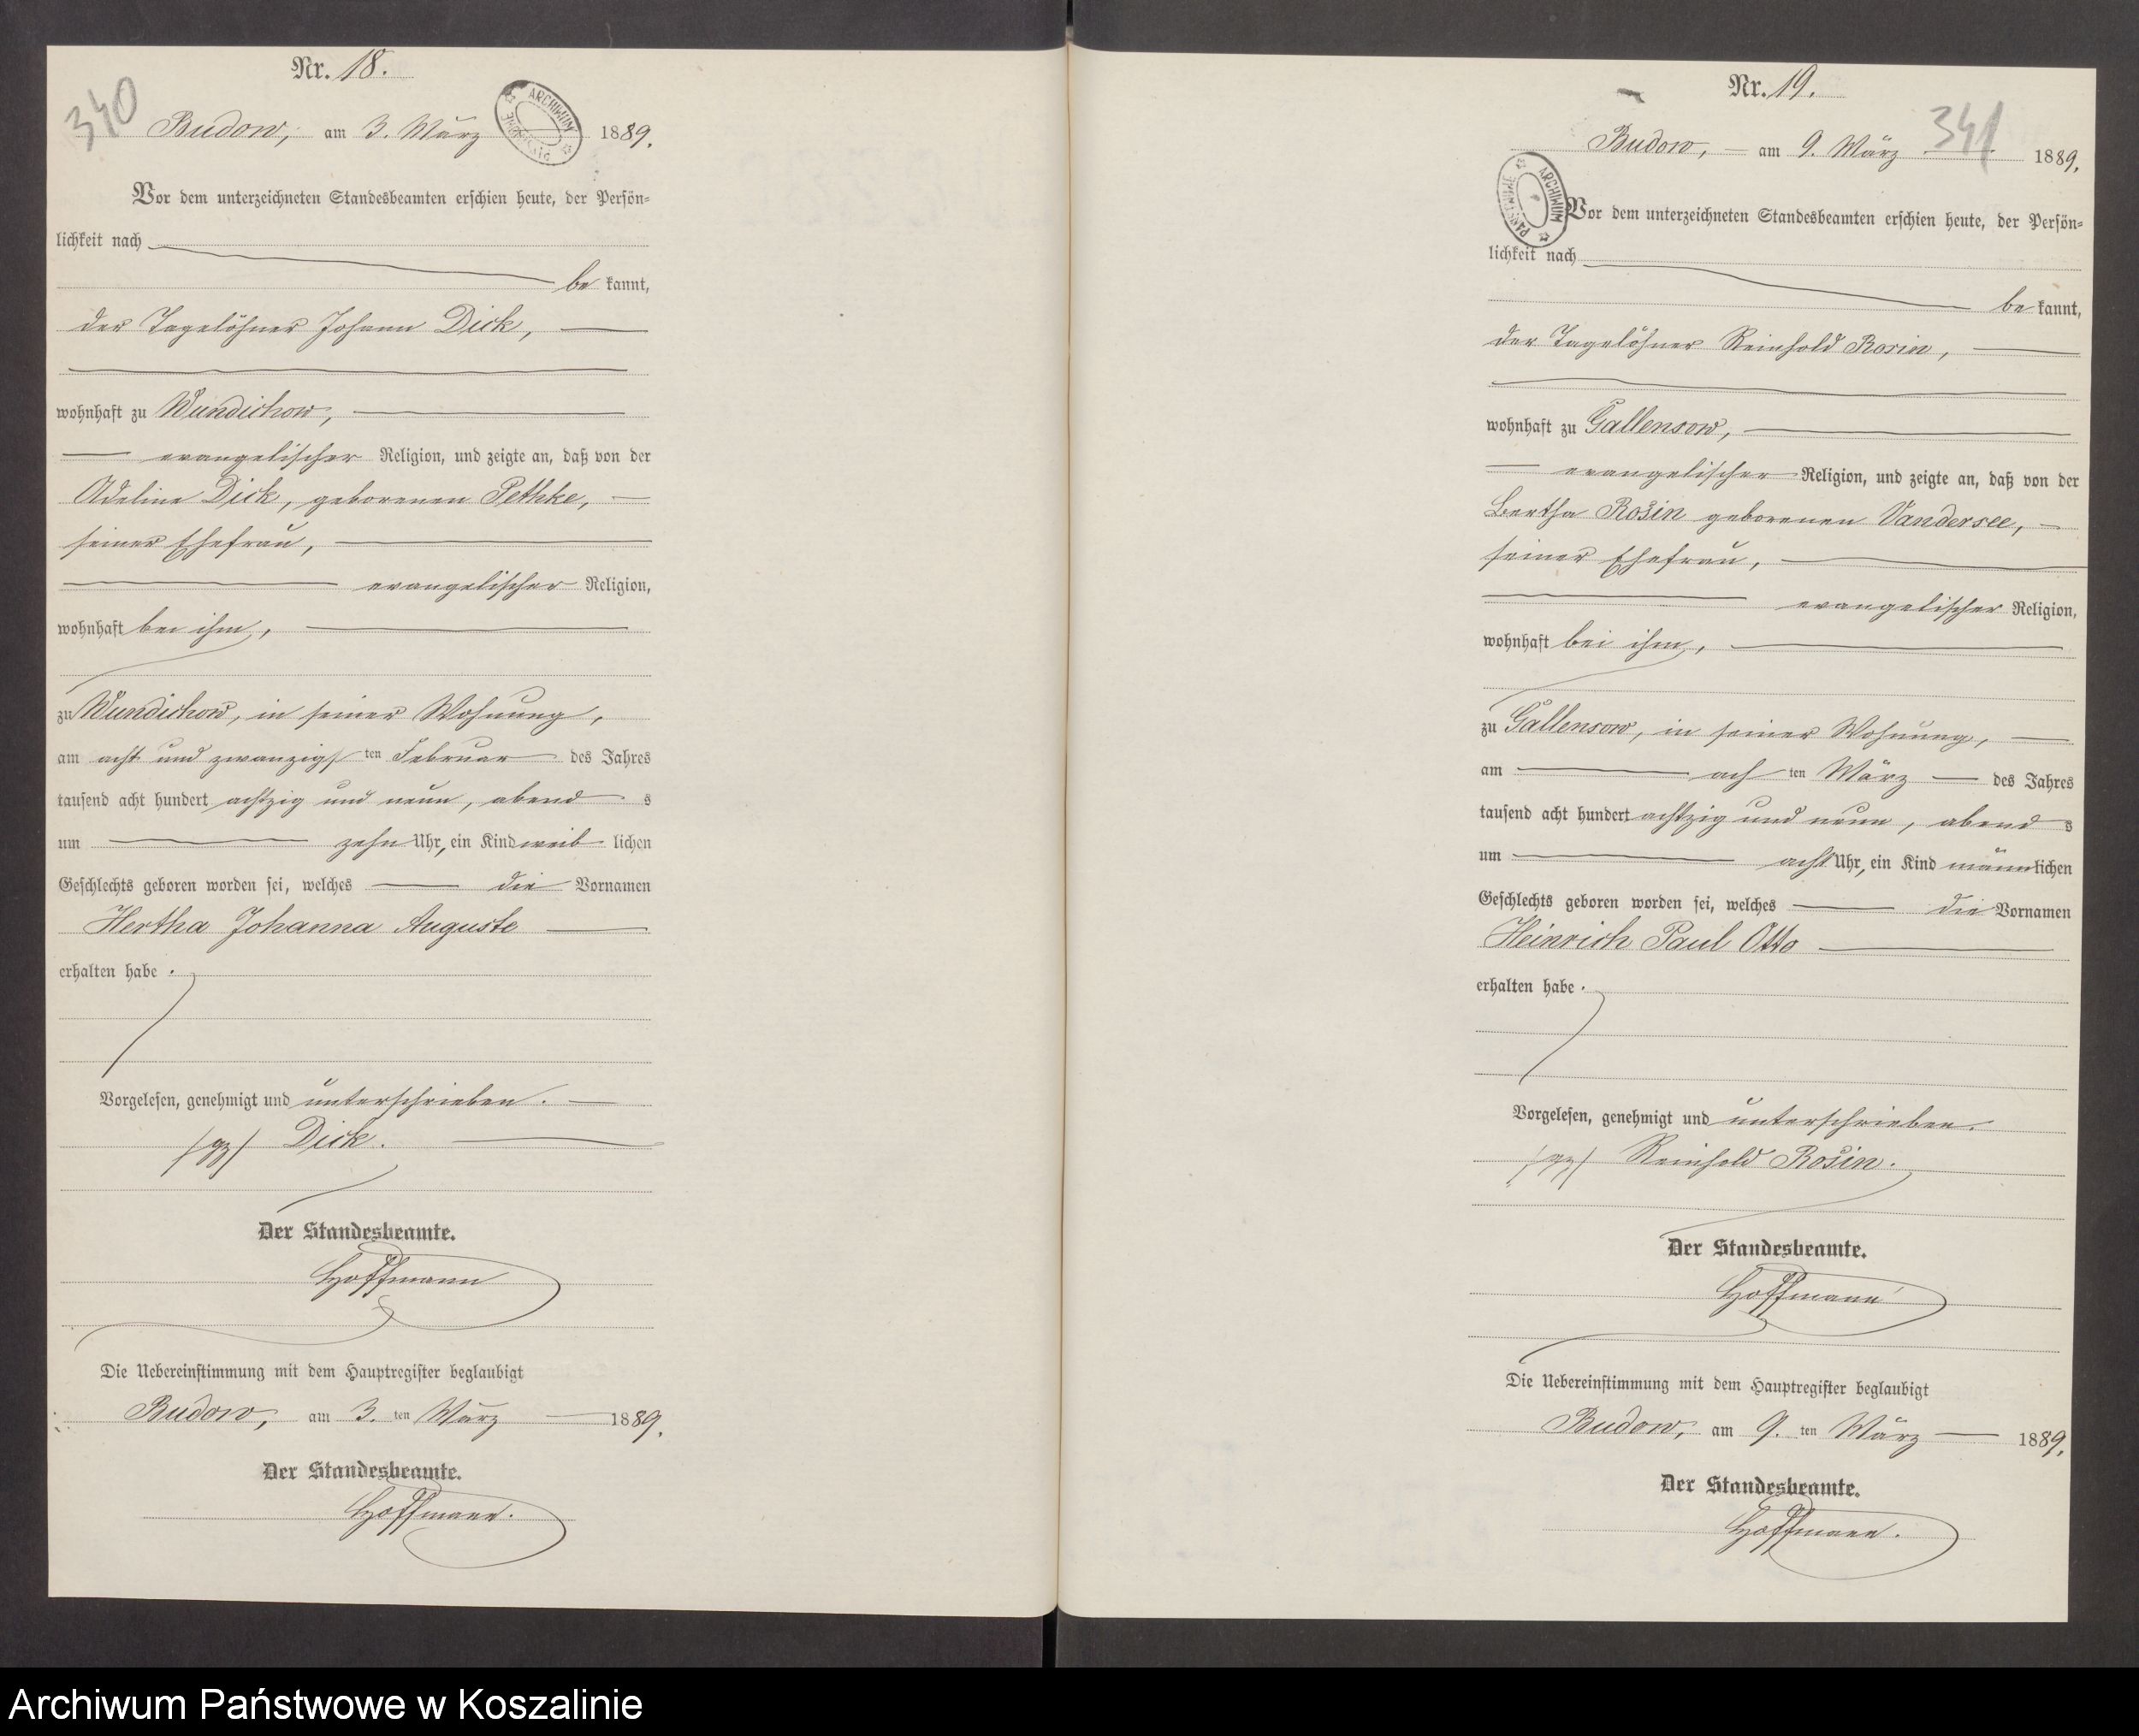 Nr. 18.
340
Budow, am 3. März 1889.
ARCHIWUM
Vor dem unterzeichneten Standesbeamten erschien heute, der Persön-
lichkeit nach
be kannt,
der Tagelöhner Johann Dick,
wohnhaft zu Wundichow,
evangelischer Religion, und zeigte an, daß von der
Adeline Dick, geborenen Pethke,
seiner Ehefrau,
evangelischer Religion,
wohnhaft bei ihm,
zu Wundichow, in seiner Wohnung,
am acht und zwanzigs ten Februar des Jahres
tausend acht hundert achtzig und neun, abend s
um zehn Uhr, ein Kind weib lichen
Geschlechts geboren worden sei, welches die Vornamen
Hertha Johanna Auguste
erhalten habe.
Vorgelesen, genehmigt und unterschrieben.
(gz) Dick.
Der Standesbeamte.
Hoffmann
Die Uebereinstimmung mit dem Hauptregister beglaubigt
Budow, am 3. ten März 1889.
Der Standesbeamte.
Hoffmann.
Nr. 19.
341
Budow, am 9. März 1889.
PAŃSTWOWE ARCHIWUM
Vor dem unterzeichneten Standesbeamten erschien heute, der Persön-
lichkeit nach
be kannt,
der Tagelöhner Reinhold Rosin,
wohnhaft zu Gallensow,
evangelischer Religion, und zeigte an, daß von der
Bertha Rosin geborenen Vandersee,
seiner Ehefrau,
evangelischer Religion,
wohnhaft bei ihm,
zu Gallensow, in seiner Wohnung,
am ach ten März des Jahres
tausend acht hundert achtzig und neun, abend s
um acht Uhr, ein Kind männlichen
Geschlechts geboren worden sei, welches die Vornamen
Heinrich Paul Otto
erhalten habe.
Vorgelesen, genehmigt und unterschrieben.
(gz) Reinhold Rosin.
Der Standesbeamte.
Hoffmann
Die Uebereinstimmung mit dem Hauptregister beglaubigt
Budow, am 9. ten März 1889.
Der Standesbeamte.
Hoffmann.
Archiwum Państwowe w Koszalinie